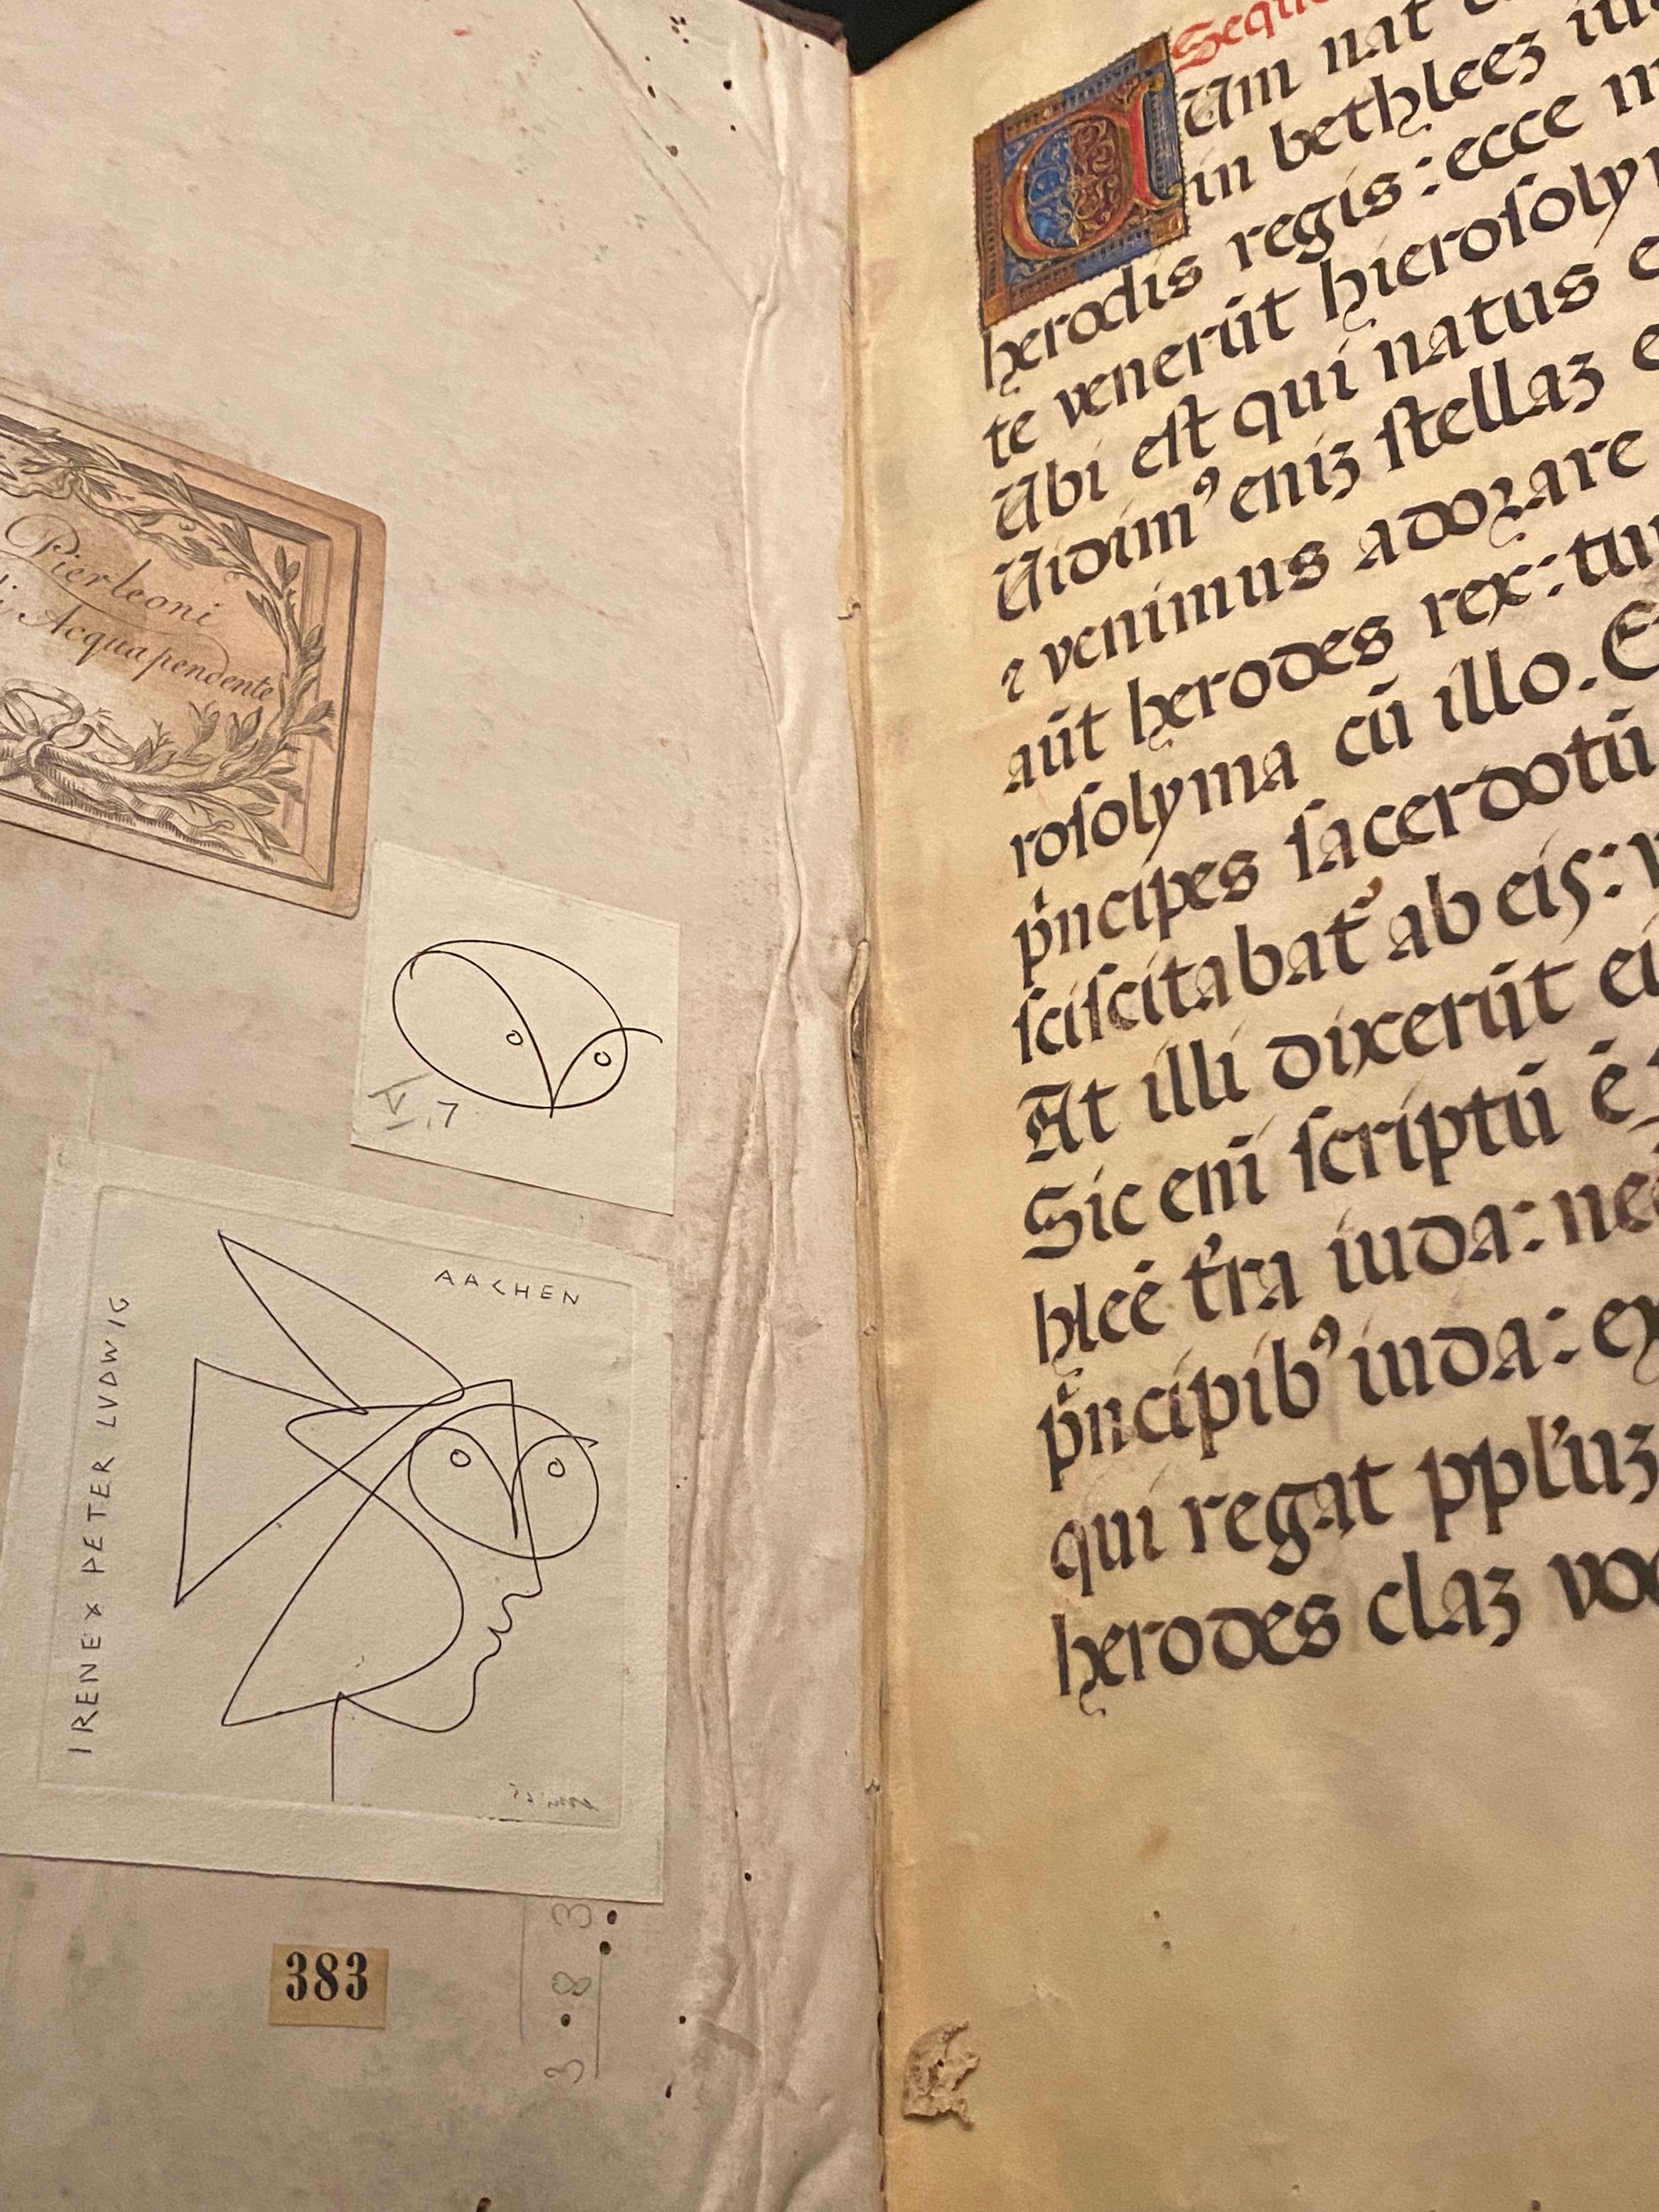 Pierleoni
Acquapendente
IV.7
AACHEN
IRENE + PETER LVDWIG
383
3.8.3
Um nat
in bethleeʒ
herodis regis: ecce
te venerūt
Ubi eſt qui natus
Uidimꝰ eniʒ ſtellaʒ
ꝛ venimus adoꝛare
aūt herodes rex:
roſolyma cū illo.
pͥncipes ſacerdotū
ſciſcitabat᷑ ab eis:
At illi dixerūt
Sic enī ſcriptū ē
bleē t̓ra iuda:
pͥncipibꝰ iuda:
qui regat ppl̓uʒ
herodes claʒ